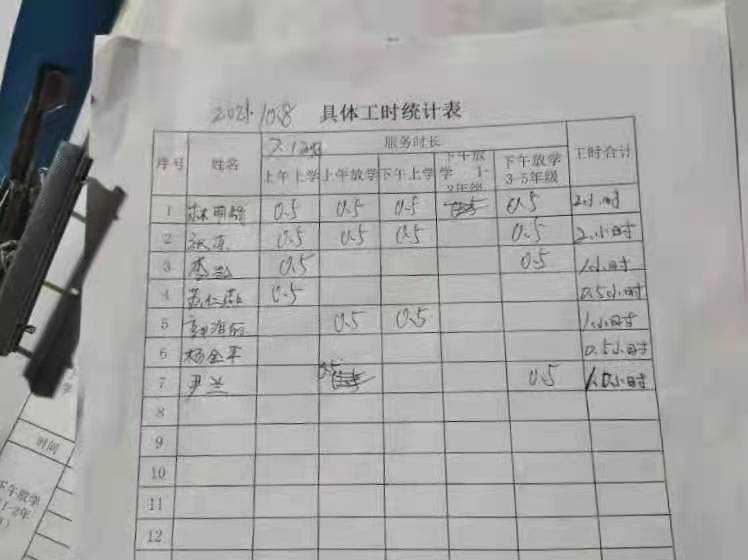 2021.10.8 具体工时统计表
序号 姓名 服务时长 工时合计
上午上学 上午放学 下午上学 下午放学 1-2年级 下午放学 3-5年级
1 0.5 0.5 0.5 0.5 2小时
2 0.5 0.5 0.5 0.5 2小时
3 0.5 0.5 1小时
4 0.5 0.5小时
5 0.5 0.5 1小时
6 杨金平 0.5小时
7 尹兰 0.5 0.5 1.0小时
8
9
10
11
12
时间
下午放学
1-2年